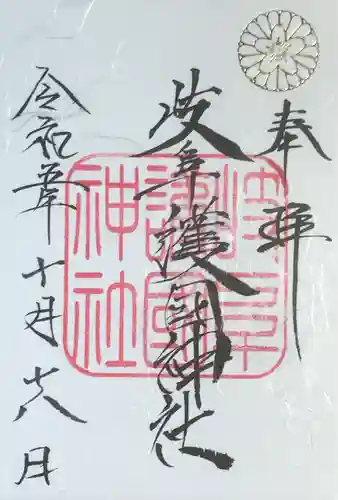 奉拝
岐阜護國神社
令和 年十月十八日
岐阜
護國
神社